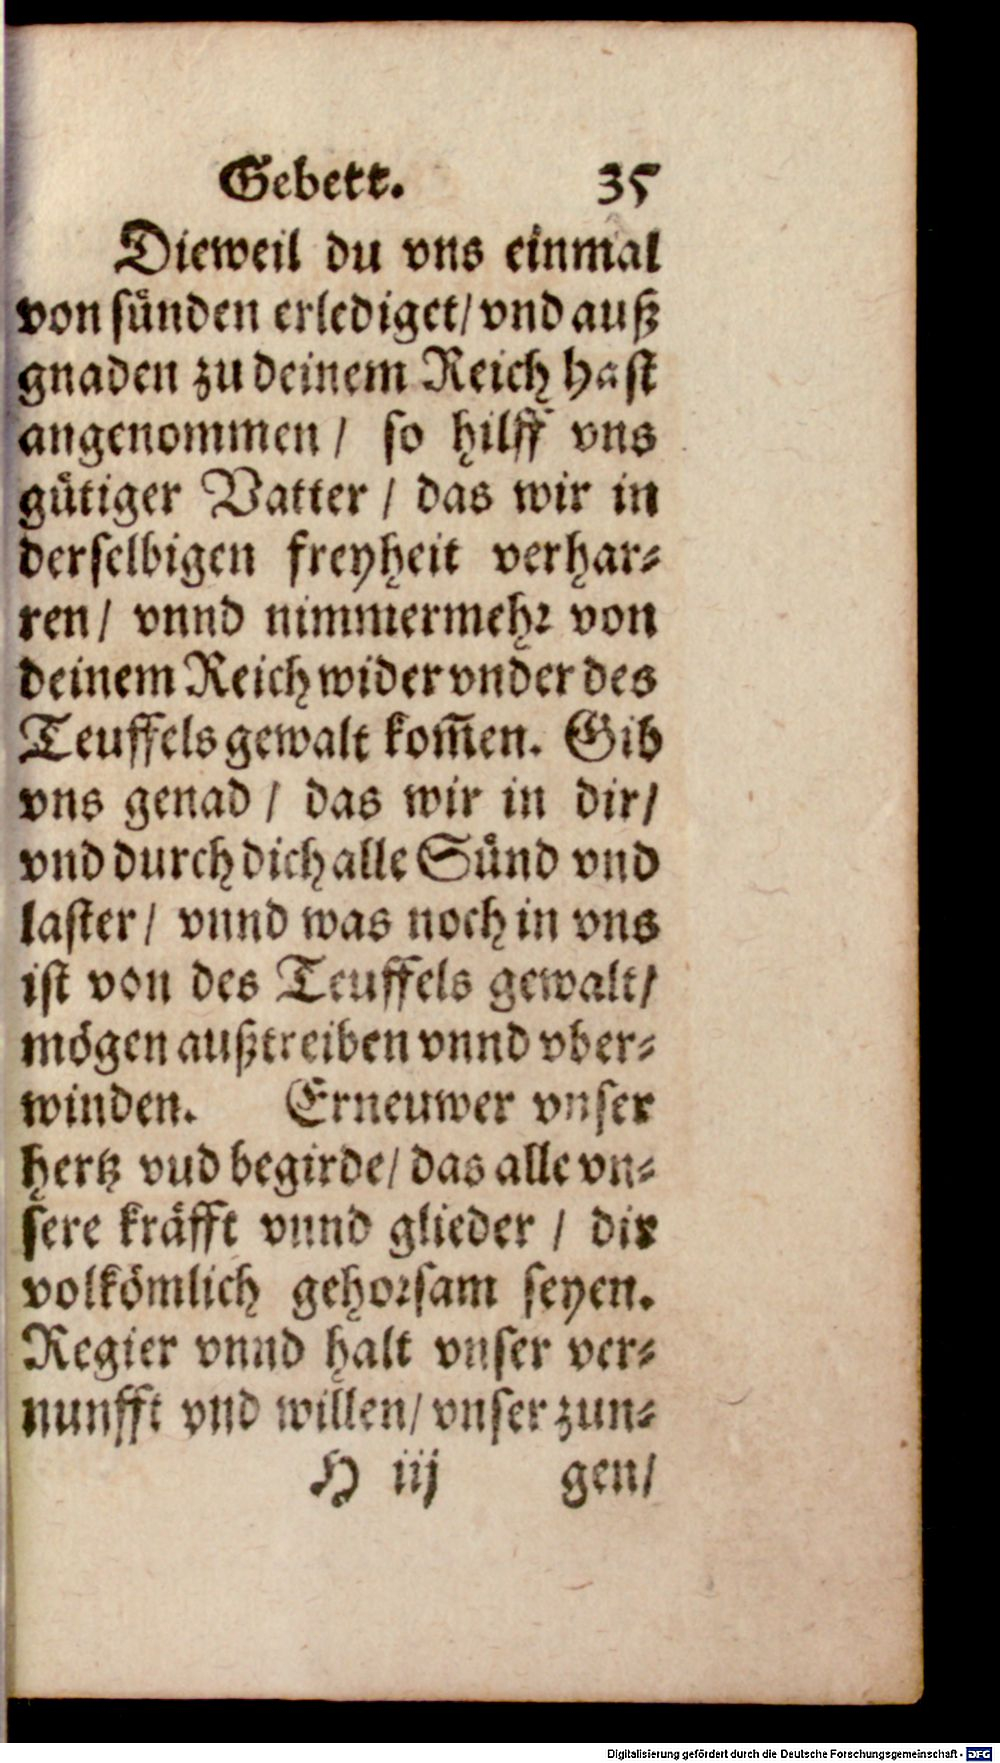 Gebett. 35
Dieweil du vns einmal
von sünden erlediget/ vnd auß
gnaden zu deinem Reich hast
angenommen / so hilff vns
gütiger Vatter / das wir in
derselbigen freyheit verhar-
ren/ vnnd nimmermehr von
deinem Reich wider vnder des
Teuffels gewalt kom̃en. Gib
vns genad / das wir in dir/
vnd durch dich alle Sünd vnd
laster/ vnnd was noch in vns
ist von des Teuffels gewalt/
mögen außtreiben vnnd vber-
winden. Erneuwer vnser
hertz vud begirde/ das alle vn-
sere kräfft vnnd glieder / dir
volkömlich gehorsam seyen.
Regier vnnd halt vnser ver-
nunfft vnd willen/ vnser zun-
H iij gen/
Digitalisierung gefördert durch die Deutsche Forschungsgemeinschaft - DFG